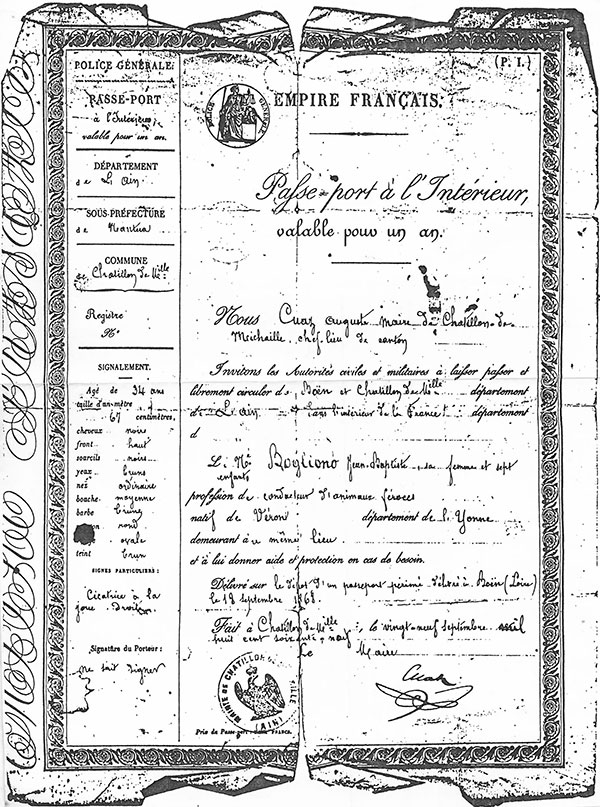 POLICE GÉNÉRALE.
PASSE-PORT
à l'Intérieur,
valable pour un an.
DÉPARTEMENT
de L'Ain
SOUS-PRÉFECTURE
de Nantua
COMMUNE
de Chatillon de Mlle
Registre
No
SIGNALEMENT.
Agé de 34 ans
taille d'un mètre
67 centimètres,
cheveux noirs
front haut
sourcils noirs
yeux bruns
nez ordinaire
bouche moyenne
barbe brune
rond
ovale
teint brun
SIGNES PARTICULIERS :
Cicatrice à la
joue Droite
Signature du Porteur :
ne sait signer
(P. I.)
POLICE GÉNÉRALE
EMPIRE FRANÇAIS.
Passe-port à l'Intérieur,
valable pour un an.
Nous Cuaz Auguste maire de Chatillon-de-
Michaille, chef lieu de canton
Invitons les Autorités civiles et militaires à laisser passer et
librement circuler de Boën et Chatillon de Mlle département
de L'Ain dans l'intérieur de la France département
d
L Né Bogliono Jean-Baptiste, sa femme et sept
enfants
profession de conducteur d'animaux féroces
natif de Véron département de l'Yonne
demeurant à ce même lieu.
et à lui donner aide et protection en cas de besoin.
Délivré sur le dépôt d'un passeport périmé délivré à Boën (Loire)
le 18 septembre 1868.
Fait à Chatillon de Mlle, le vingt-neuf septembre mil
huit cent soixante neuf
Le Maire
Cuaz
MAIRIE DE CHATILLON DE MICHAILLE
(AIN)
Prix du Passe-port : FRANCS.